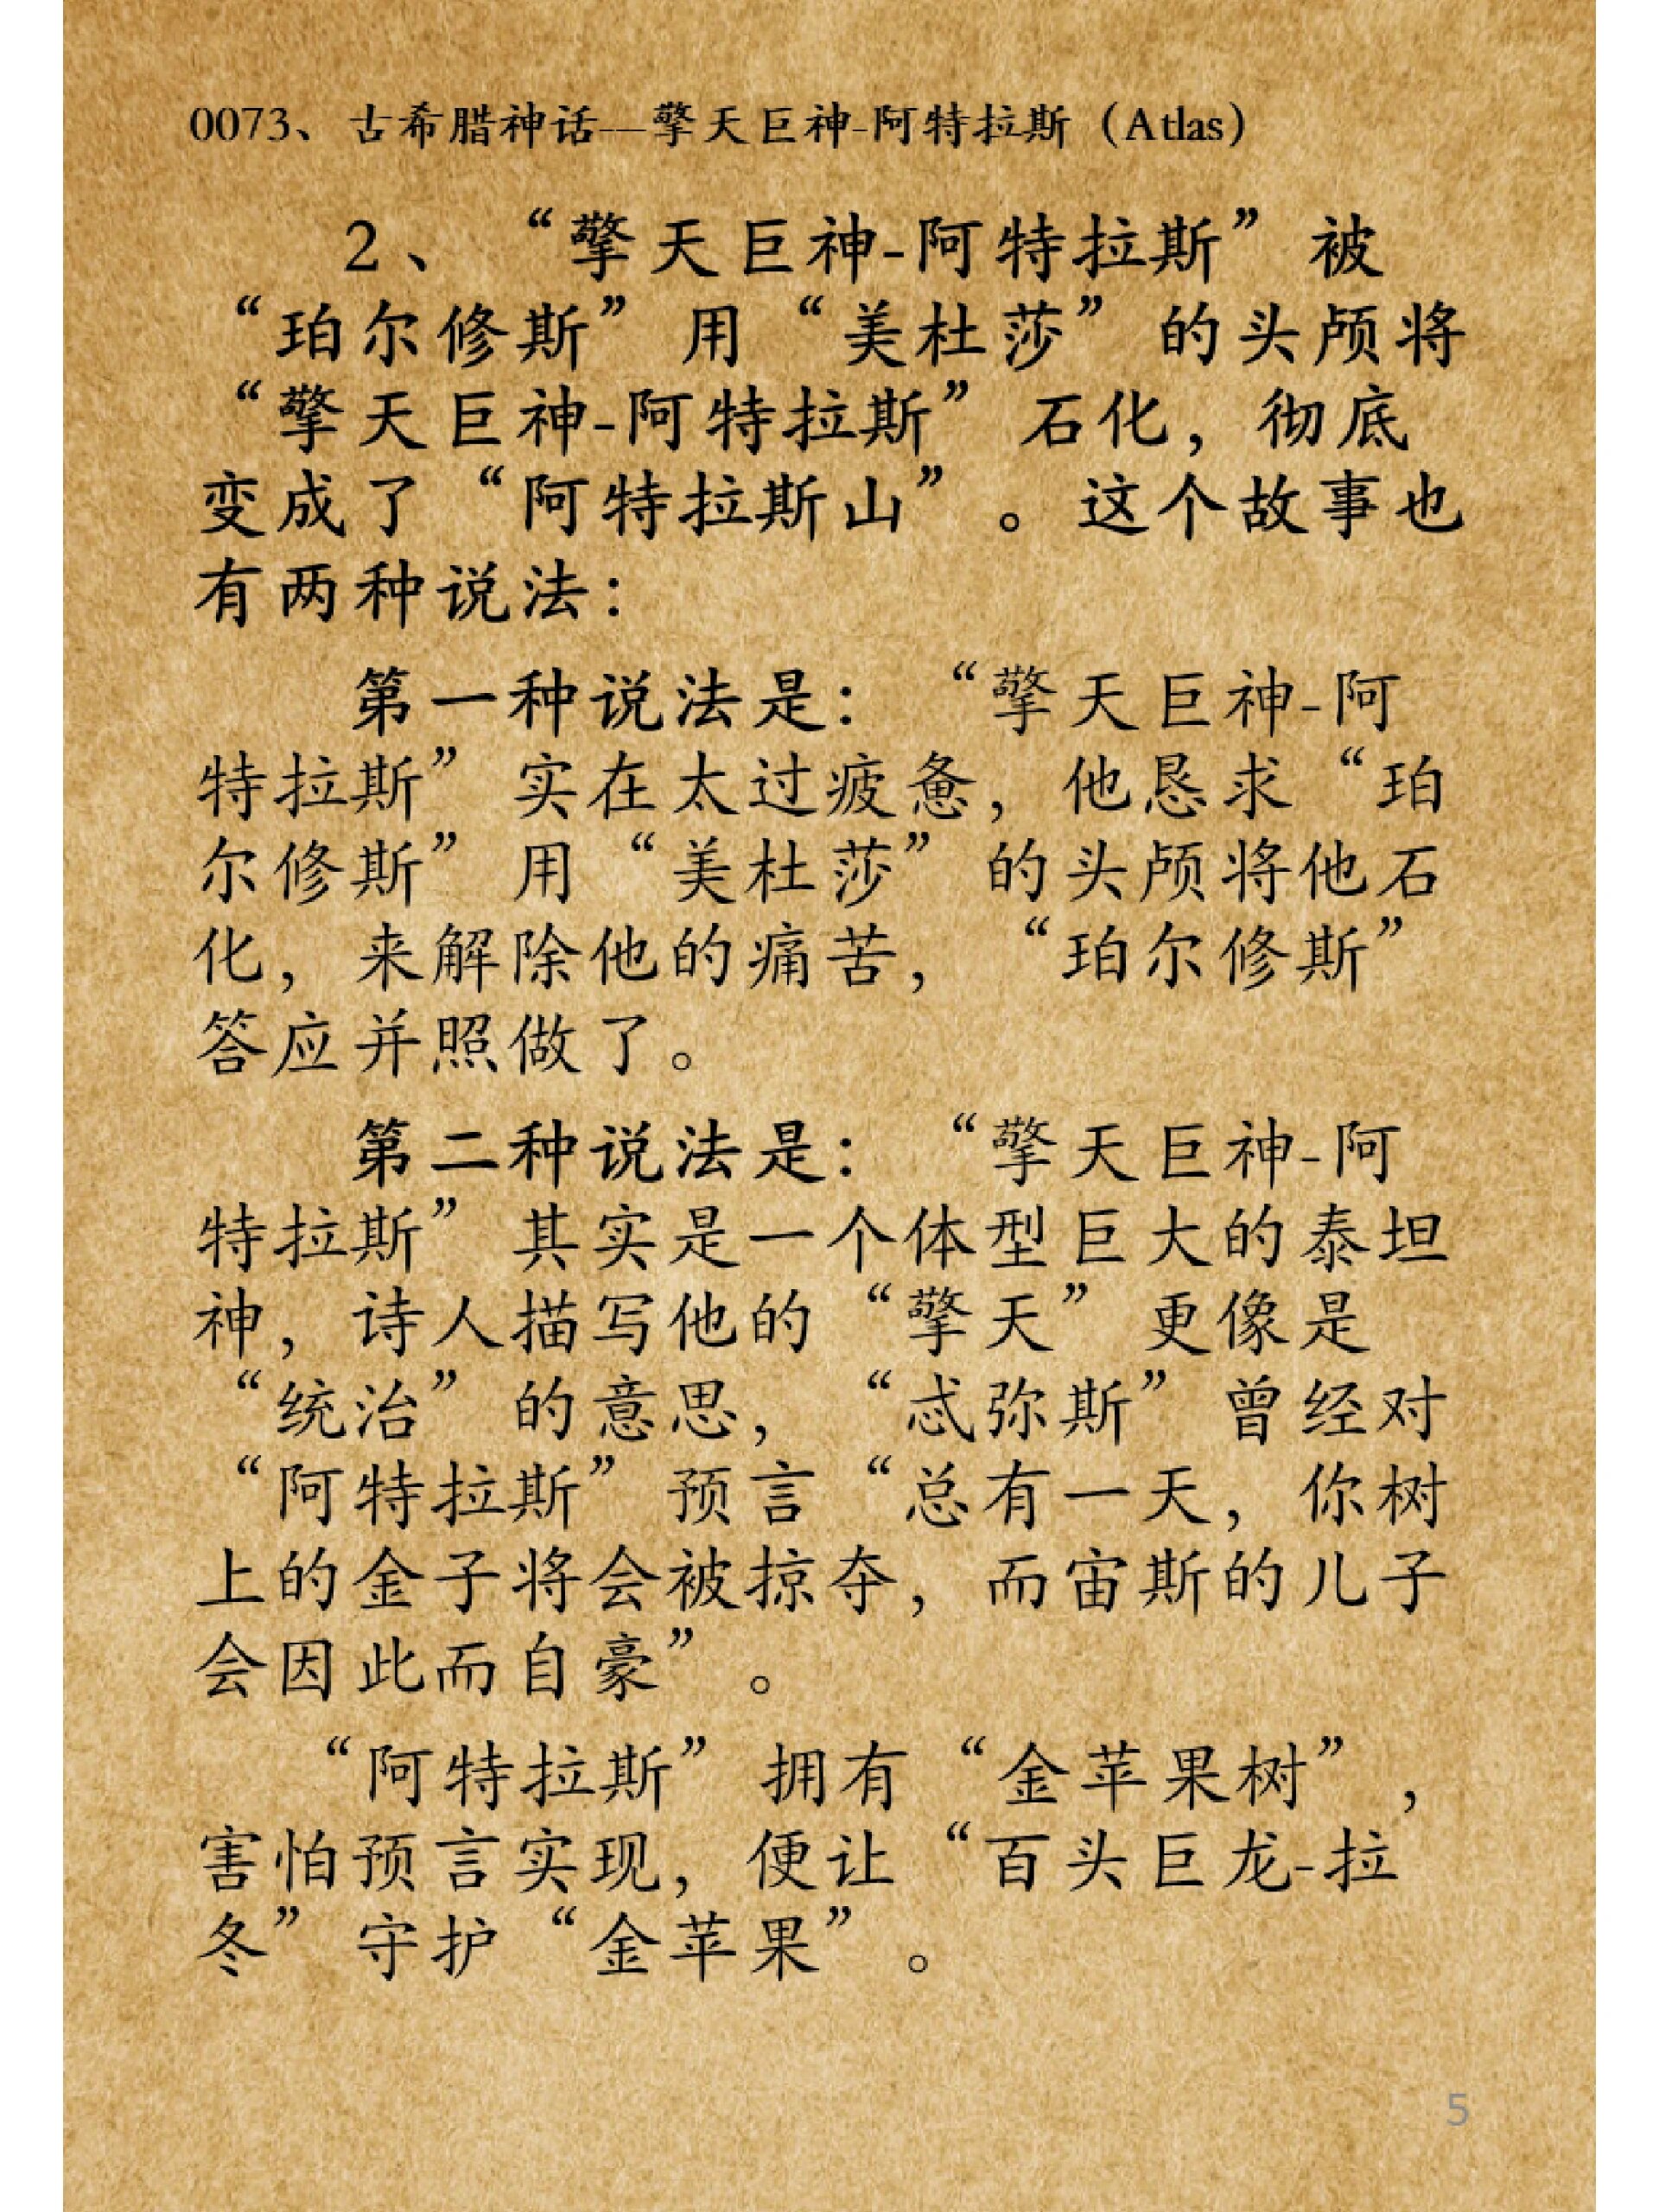 0073、古希腊神话—擎天巨神-阿特拉斯（Atlas）
2、“擎天巨神-阿特拉斯”被
“珀尔修斯”用“美杜莎”的头颅将
“擎天巨神-阿特拉斯”石化，彻底
变成了“阿特拉斯山”。这个故事也
有两种说法：
第一种说法是：“擎天巨神-阿
特拉斯”实在太过疲惫，他恳求“珀
尔修斯”用“美杜莎”的头颅将他石
化，来解除他的痛苦，“珀尔修斯”
答应并照做了。
第二种说法是：“擎天巨神-阿
特拉斯”其实是一个体型巨大的泰坦
神，诗人描写他的“擎天”更像是
“统治”的意思，“忒弥斯”曾经对
“阿特拉斯”预言“总有一天，你树
上的金子将会被掠夺，而宙斯的儿子
会因此而自豪”。
“阿特拉斯”拥有“金苹果树”，
害怕预言实现，便让“百头巨龙-拉
冬”守护“金苹果”。
5